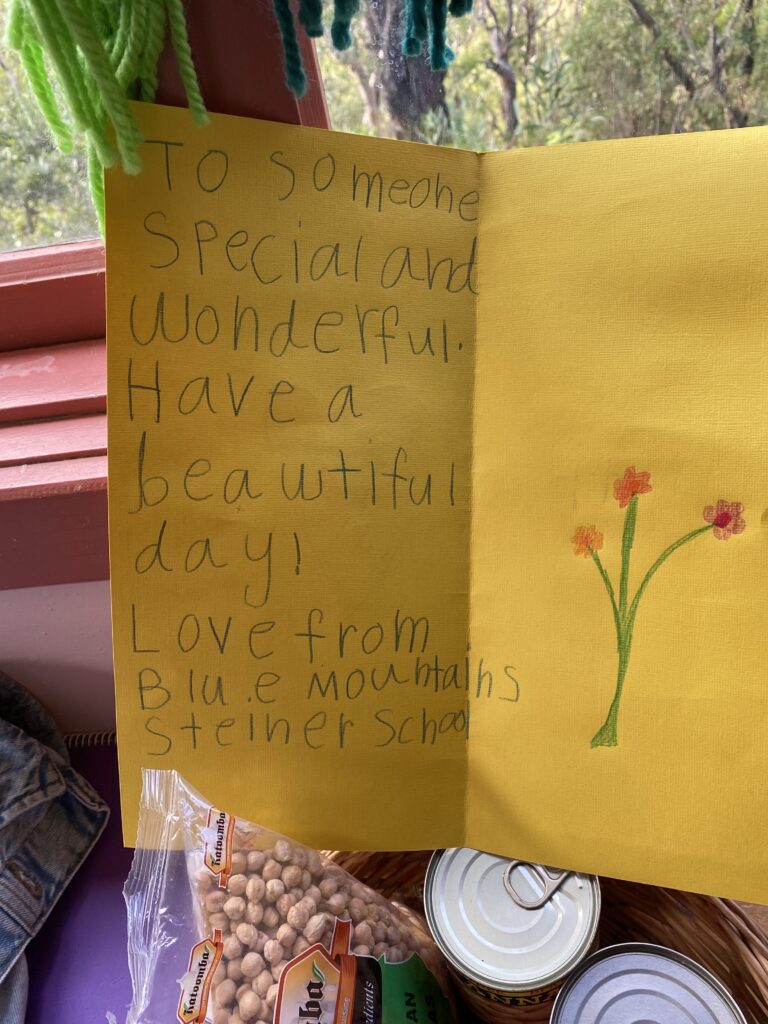 To someone
special and
wonderful.
Have a
beautiful
day!
Love from
Blu.e Mountains
Steiner School
Katoomba
Katoomba